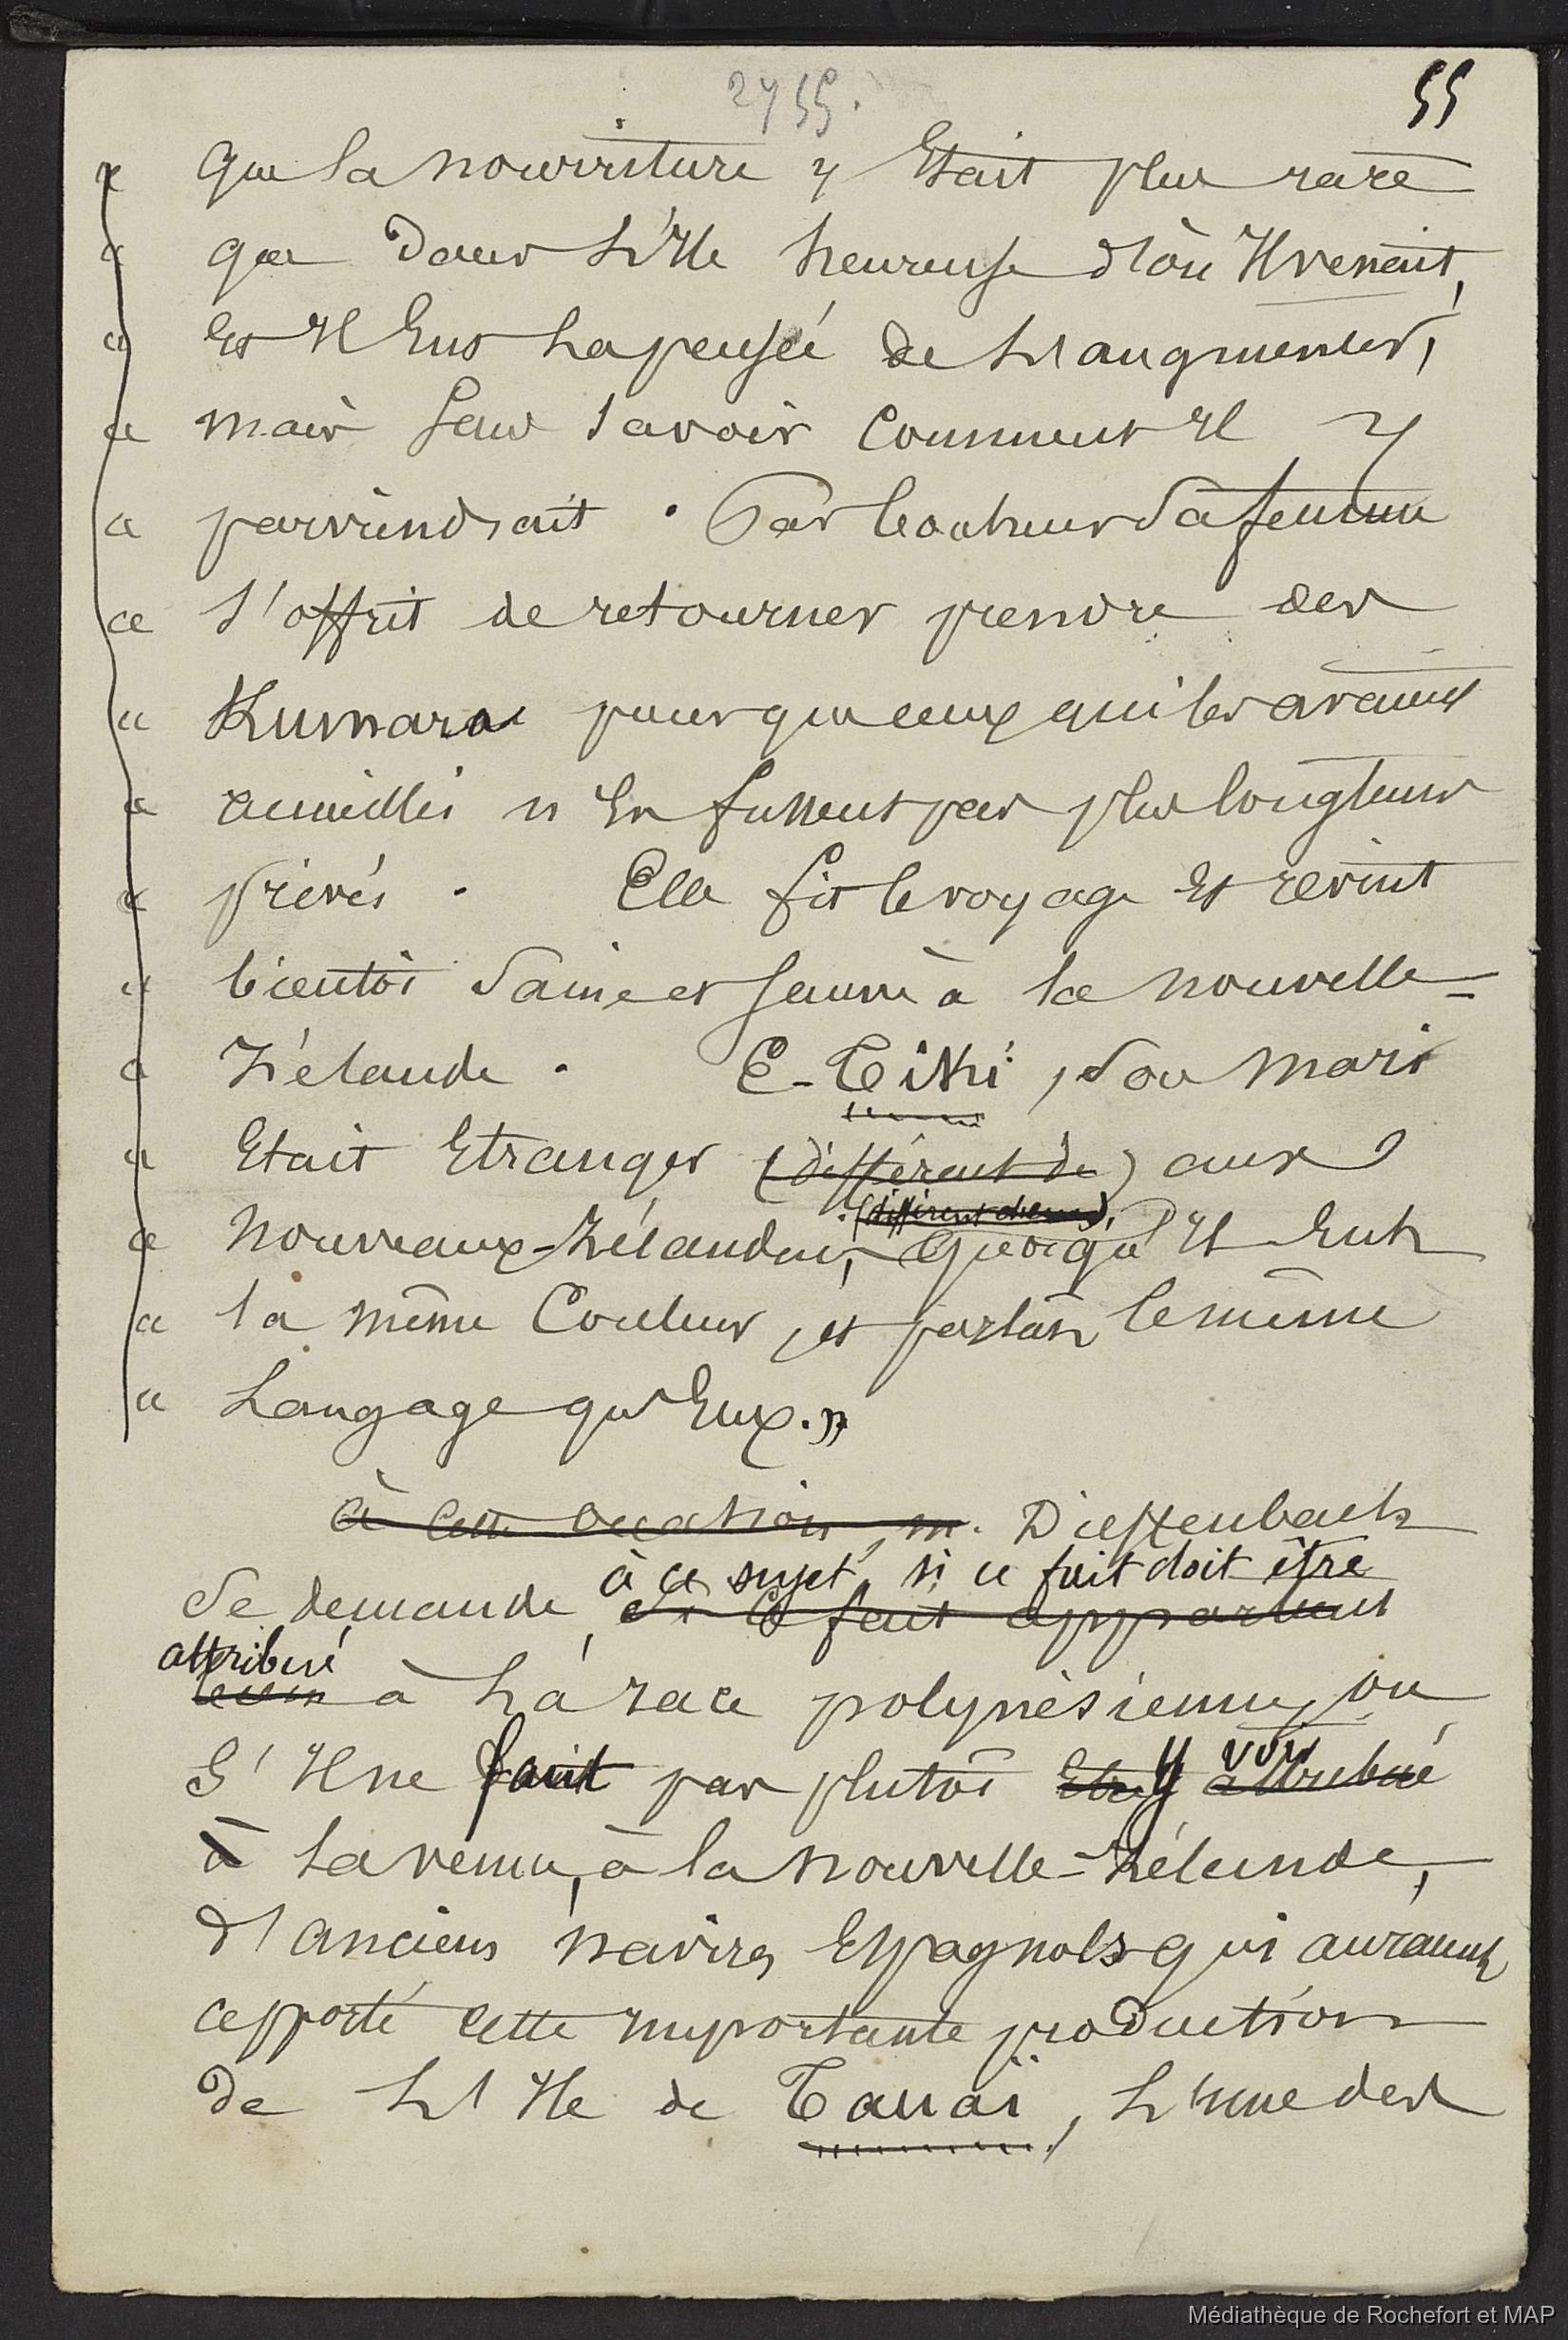 2755.
55
« que la nourriture y était plus rare
« que dans l'Ile heureuse d'où Il venait,
« et Il eut la pensée de l'augmenter,
« mais sans savoir comment Il y
« parviendrait. Par bonheur sa femme
« s'offrit de retourner prendre des
« Kumara pour que ceux qui les avaient
« accueillis n'en fussent pas plus longtems
« privés. Elle fit le voyage et revint
« bientôt saine et sauve à la nouvelle-
« Zélande. E-Tiki, son mari
« était étranger (différent de) aux
(différent chez),
« nouveaux-Zélandais, quoiqu'Il eut
« la même couleur, et parlât le même
« langage qu'eux. »
à cette occasion, m. Dieffenbach
à ce sujet, si ce fait doit être
se demande, si ce fait appartient
attribué
bien à la race polynésienne, ou
voir
s'Il ne faut pas plutôt être y attribué
à la venue, à la nouvelle-Zélande,
d'anciens navires Espagnols qui auraient
apporté cette importante production
de l'Ile de Tauaï, l'une des
Médiathèque de Rochefort et MAP